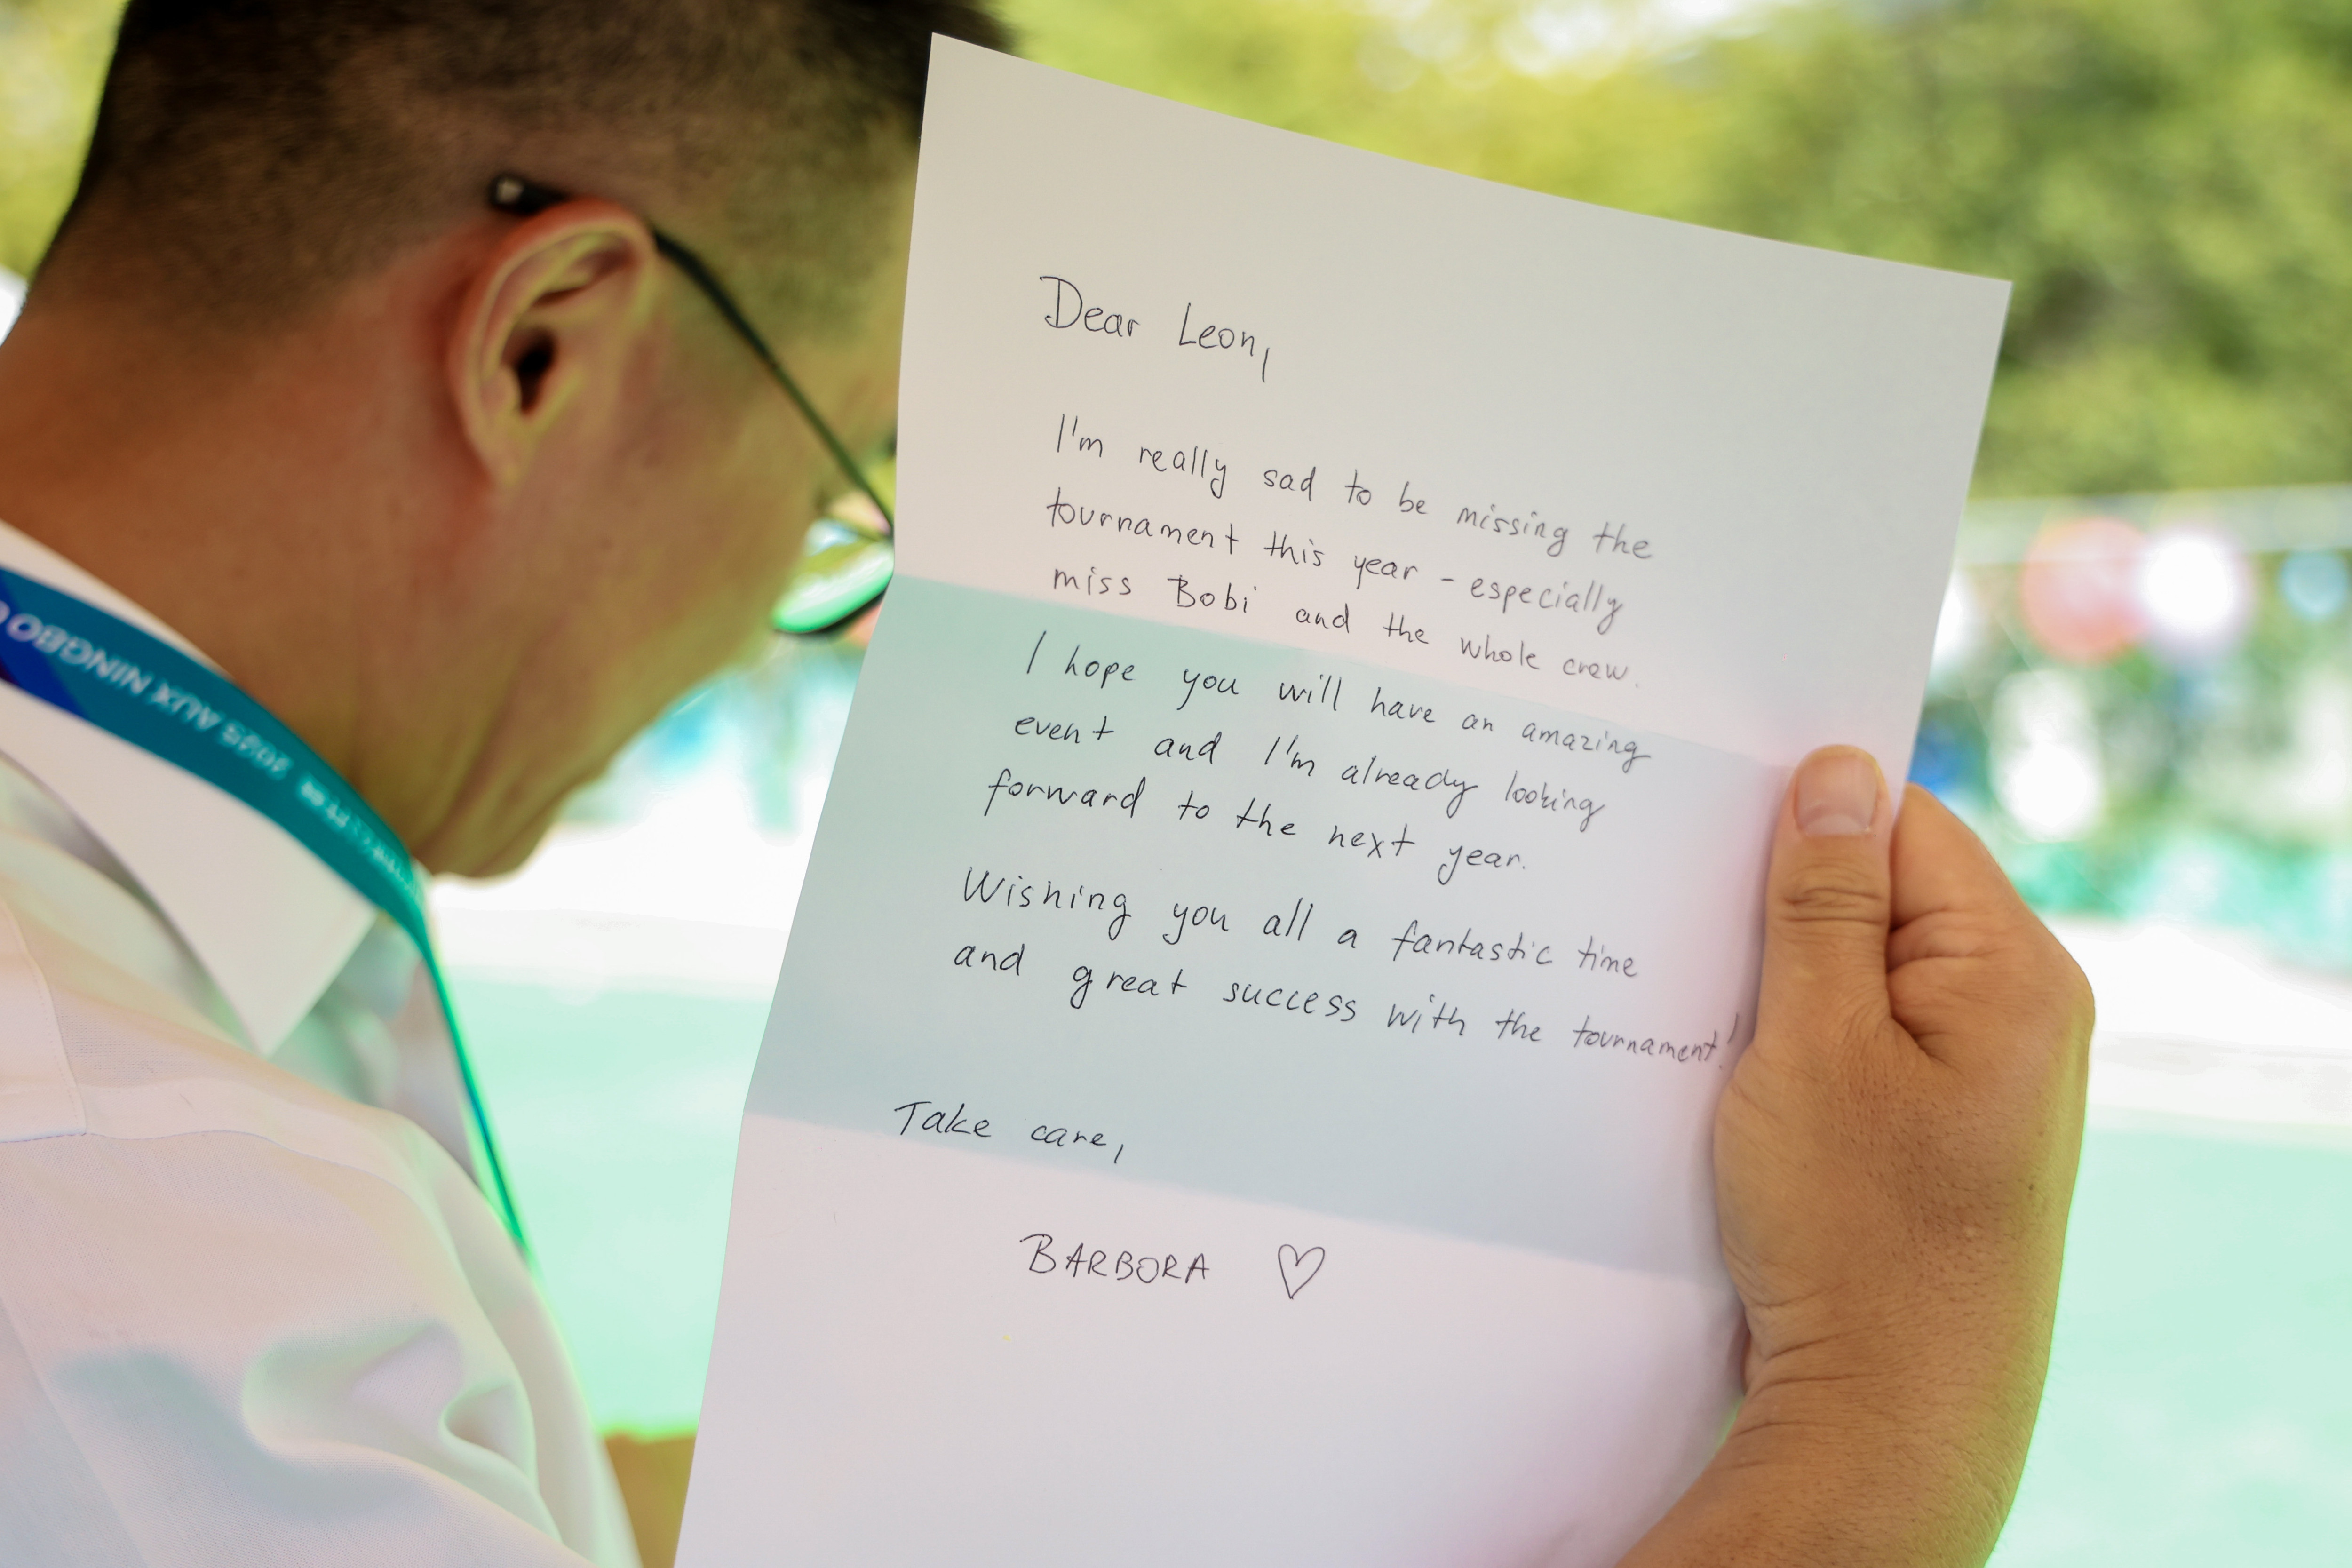 Dear Leon,
I'm really sad to be missing the
tournament this year - especially
miss Bobi and the whole crew.
I hope you will have an amazing
event and I'm already looking
forward to the next year.
Wishing you all a fantastic time
and great success with the tournament!
Take care,
BARBORA ♡
2025 AUX NINGBO